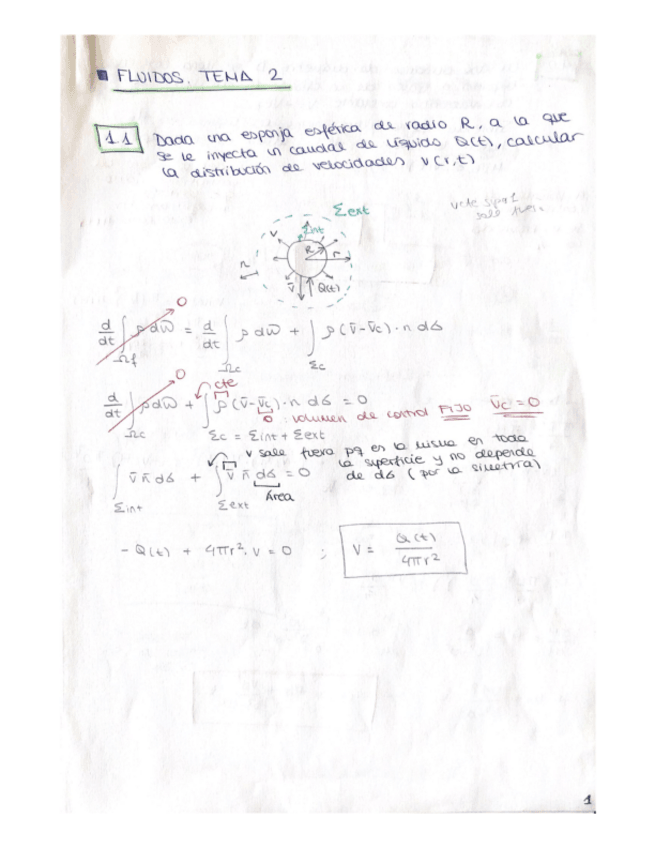 ■ FLUIDOS. TEMA 2
1.1 Dada una esponja esférica de radio R, a la que
se le inyecta un caudal de líquido Q(t), calcular
la distribución de velocidades v(r,t)
Σext
sale fuera
Σint
v
R
r
n
v̄
Q(t)
d/dt ∫Ωf ρ dω̄ = d/dt ∫Ωc ρ dω̄ + ∫Σc ρ(v̄-v̄c)·n dσ
0
0
cte
d/dt ∫Ωc ρ dω̄ + ∫ ρ(v̄-v̄c)·n dσ = 0
0 : volumen de control FIJO v̄c = 0
Σc = Σint + Σext
v sale fuera pq es la misma en toda
la superficie y no depende
de dσ (por la simetría)
∫Σint v̄ n̄ dσ + ∫Σext v̄ n̄ dσ = 0
Área
- Q(t) + 4πr²· v = 0 ; v = Q(t) / 4πr²
1